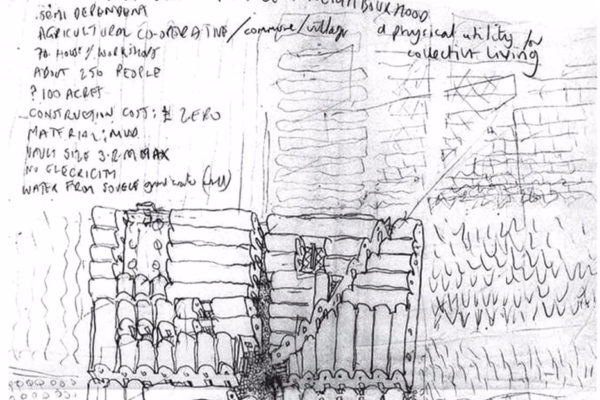 SEMI DEPENDENT NEIGHBOURHOOD
AGRICULTURAL CO-OPERATIVE/commune/village a physical utility for
collective living
70 HOUSES/WORKSHOPS
ABOUT 250 PEOPLE
? 100 ACRES
CONSTRUCTION COST: ± ZERO
MATERIAL: MUD
VAULT SIZE 3.2 M MAX
NO ELECRICITY
WATER FROM SOURCE (well)